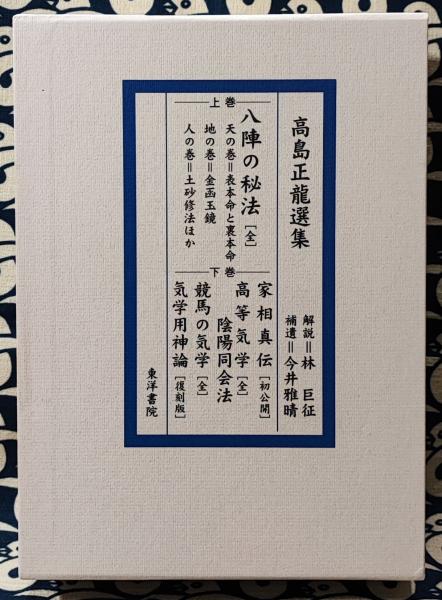 高島正龍選集
解説＝林　巨征
補遺＝今井雅晴
上巻
八陣の秘法［全］
天の巻＝表本命と裏本命
地の巻＝金函玉鏡
人の巻＝土砂修法ほか
下巻
家相真伝［初公開］
高等気学［全］
陰陽同会法
競馬の気学［全］
気学用神論［復刻版］
東洋書院